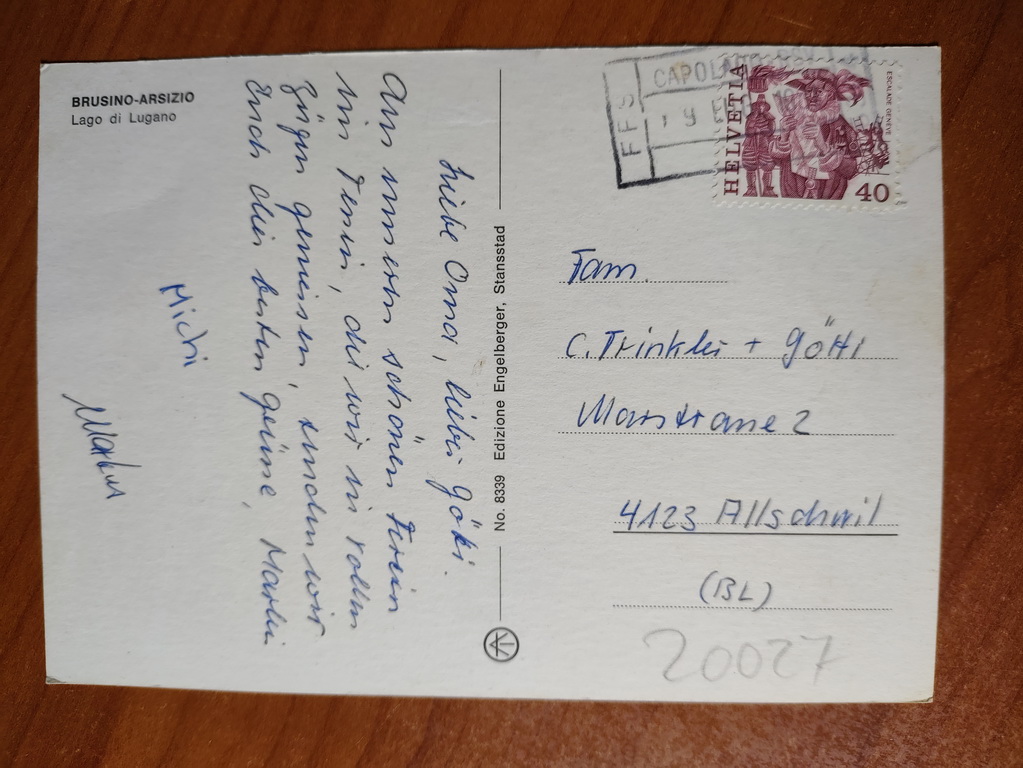 BRUSINO-ARSIZIO
Lago di Lugano
Liebe Oma, lieber Götti.
Aus unseren schönen Ferien
im Tessin, die wir in vollen
Zügen geniessen, senden wir
Euch die besten Grüsse,
Michi
Markus
No. 8339 Edizione Engelberger, Stansstad
FFS
CAPOLAGO
HELVETIA
ESCALADE GENÈVE
40
Fam.
C. Trinkler + Götti
4123 Allschwil
(BL)
20027